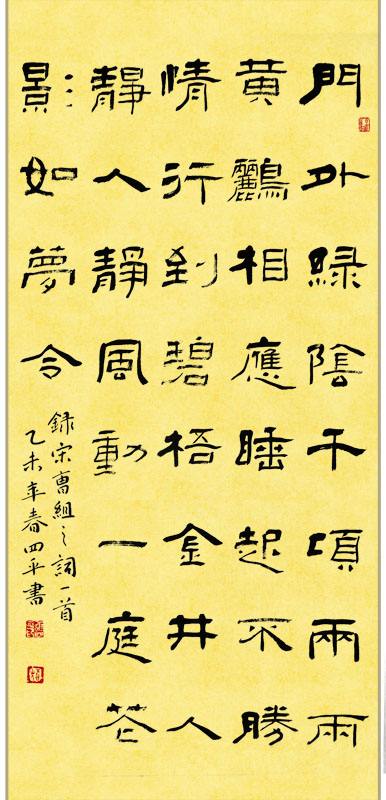 門外緑陰千頃兩雨
黄鸝相應睡起不勝
情行到碧梧金井人
靜人靜風動一庭花
影如夢令
録宋曹組之詞一首
乙未年春四平書